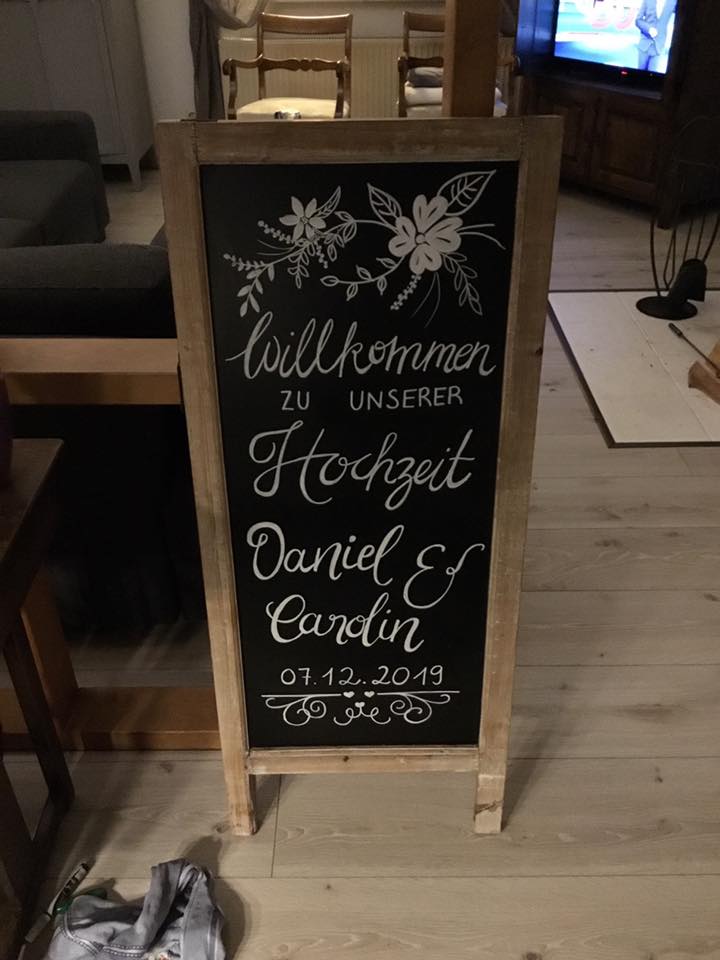 Willkommen
ZU UNSERER
Hochzeit
Daniel &
Carolin
07.12.2019